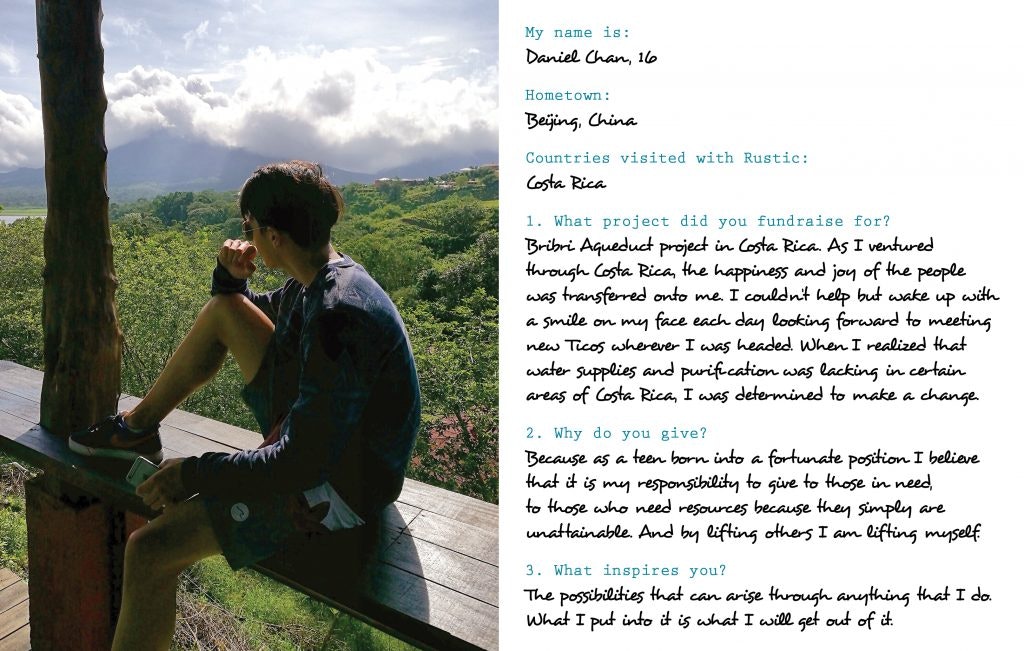 My name is:
Daniel Chan, 16
Hometown:
Beijing, China
Countries visited with Rustic:
Costa Rica
1. What project did you fundraise for?
Bribri Aqueduct project in Costa Rica. As I ventured
through Costa Rica, the happiness and joy of the people
was transferred onto me. I couldn't help but wake up with
a smile on my face each day looking forward to meeting
new Ticos wherever I was headed. When I realized that
water supplies and purification was lacking in certain
areas of Costa Rica, I was determined to make a change.
2. Why do you give?
Because as a teen born into a fortunate position I believe
that it is my responsibility to give to those in need,
to those who need resources because they simply are
unattainable. And by lifting others I am lifting myself.
3. What inspires you?
The possibilities that can arise through anything that I do.
What I put into it is what I will get out of it.